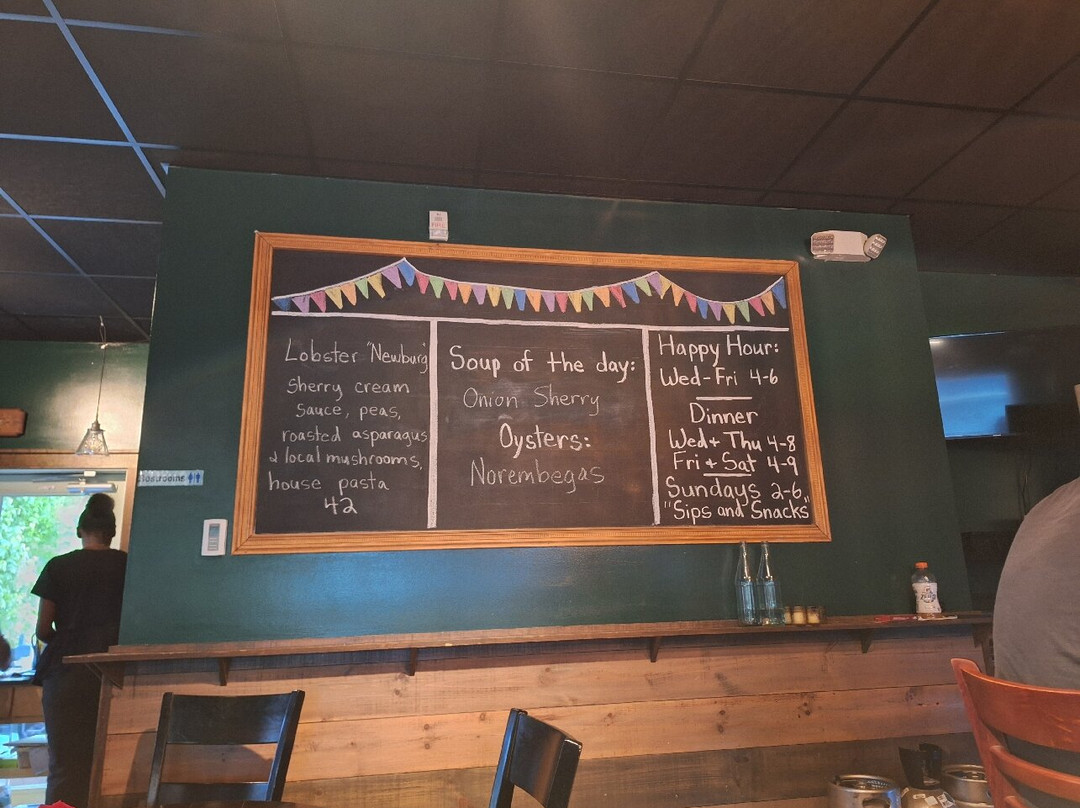 Lobster "Newburg"
Sherry cream
sauce, peas,
roasted asparagus
& local mushrooms,
house pasta
42
Soup of the day:
Onion Sherry
Oysters:
Norembegas
Happy Hour:
Wed-Fri 4-6
Dinner
Wed + Thu 4-8
Fri + Sat 4-9
Sundays 2-6
"Sips and Snacks"
Restrooms